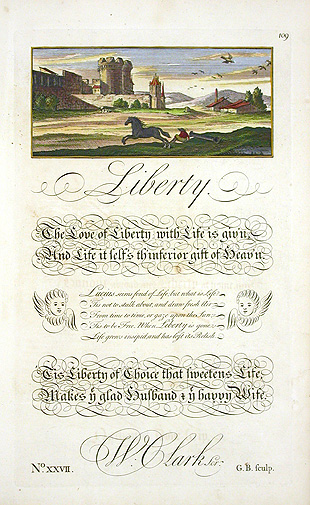 109
Liberty.
The Love of Liberty with Life is giv'n,
And Life it self's th'inferior gift of Heav'n.
Lucius seems fond of Life, but what is Life?
'Tis not to stalk about, and draw fresh Air
From time to time, or gaze upon the Sun;
'Tis to be Free. When Liberty is gone,
Life grows insipid and has lost its Relish.
'Tis Liberty of Choice that sweetens Life,
Makes ye glad Husband & ye happy Wife.
W. Clark Scr.
No. XXVII.
G. B. sculp.